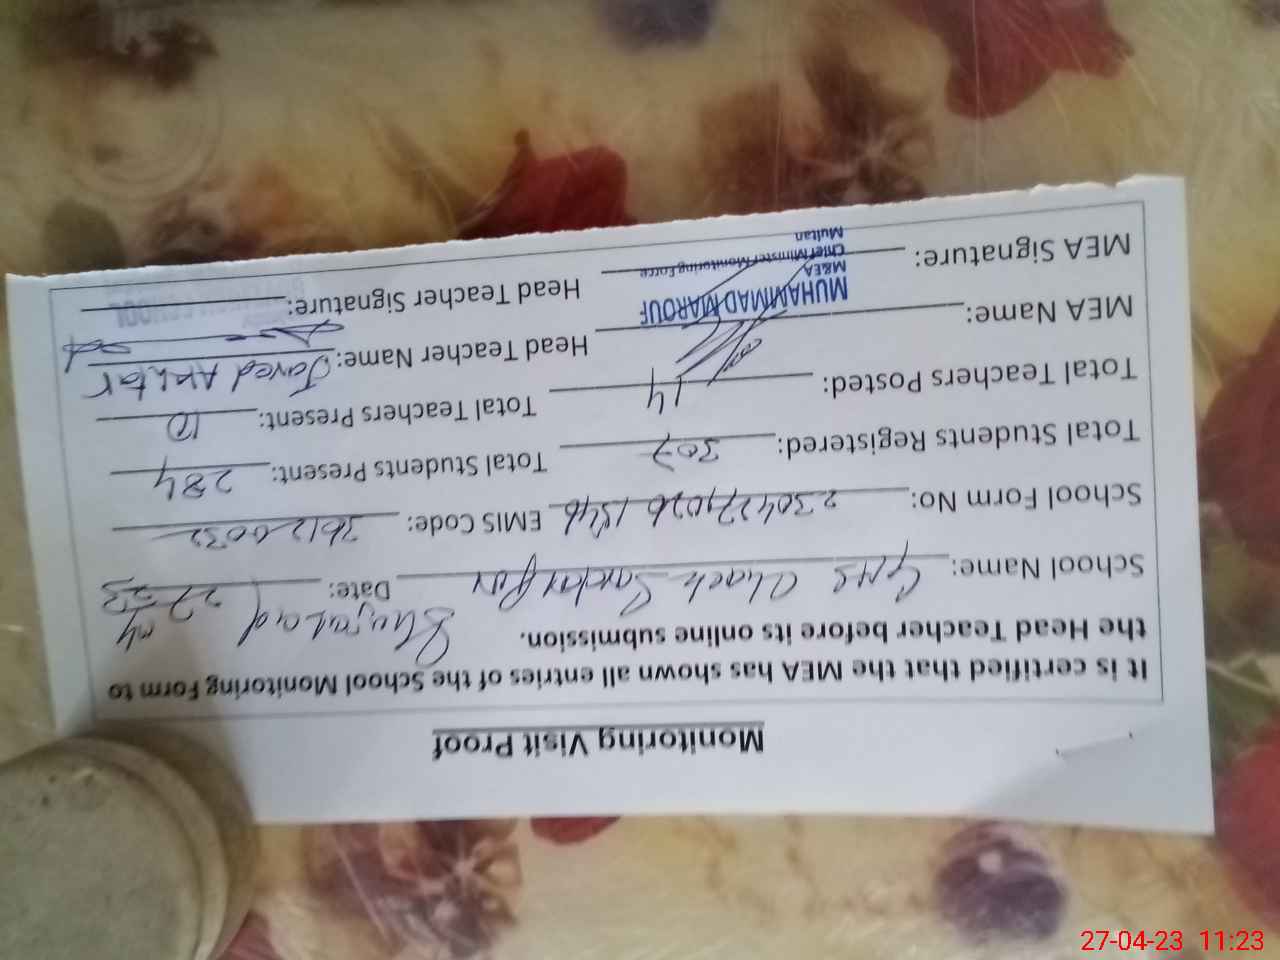 Monitoring Visit Proof
It is certified that the MEA has shown all entries of the School Monitoring Form to
the Head Teacher before its online submission.
School Name: GMS Chack Sardar Pur Shujabad Date: 27-4-23
School Form No: EMIS Code:
Total Students Registered: 307 Total Students Present: 284
Total Teachers Posted: 14 Total Teachers Present: 10
MEA Name: Head Teacher Name: Javed Akhtar
MUHAMMAD MAROUF
M&EA
Chief Minister Monitoring Force
Multan
MEA Signature: Head Teacher Signature:
27-04-23 11:23